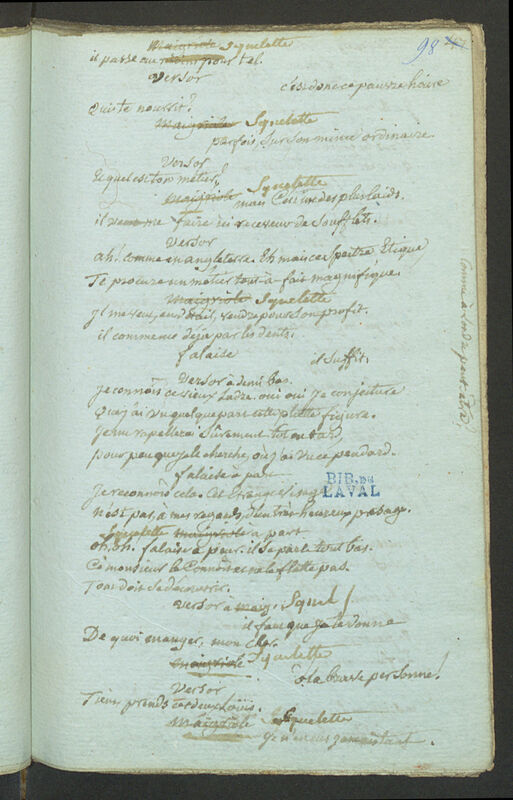 98
maigriole Squelette
il passe au pour tel.
Versor
c'est donc ce pauvre haire
Qui te nourrit?
maigriole Squelette
parfois, sur son mince ordinaire
Versor
Et quel est ton métier?
maigriole Squelette
mais c'est un des plus laids.
il veut me faire ici receveur de soufflets.
Versor
ah! comme en angleterre. Eh mais ce Spectre Etique
Te procure un métier tout-à-fait magnifique.
maigriole Squelette
il me veut, en détail, vendre pour son profit.
il commence déja par les dents.
falaise
il suffit.
Versor à demi bas.
Je connois ce vieux Ladre. oui oui je conjecture
Que j'ai vu quelque part cette platte figure.
Je me rapellerai surement tot ou tard,
pour peu que je le cherche, où j'ai vu ce pendard.
falaise à part
Je reconnois cela. Cet Etrange visage
n'est pas, à mes regards, d'un très heureux présage.
Squelette maigriole à part.
oh. oh. falaise a peur. il se parle tout bas.
Ce monsieur le connoit et ne le flatte pas.
Tout doit se découvrir.
Versor à maig. Squel
il faut que je te donne
De quoi manger, mon cher.
maigriole Squelette
ô la bonne personne!
Versor
Tiens prends ces deux Louis.
maigriole Squelette
Je n'en eus jamais tant.
BIB. DE
LAVAL